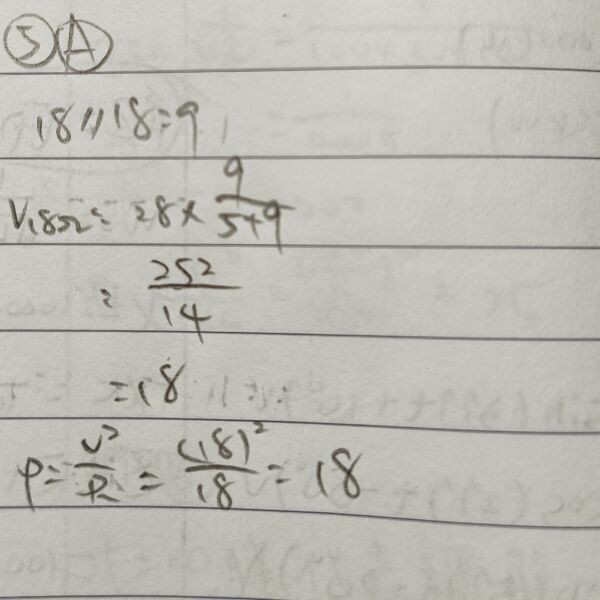 ⑤Ⓐ
18//18=9
V₁₈Ω= 28 × 9/(5+9)
= 252/14
=18
P = V²/R = (18)²/18 = 18